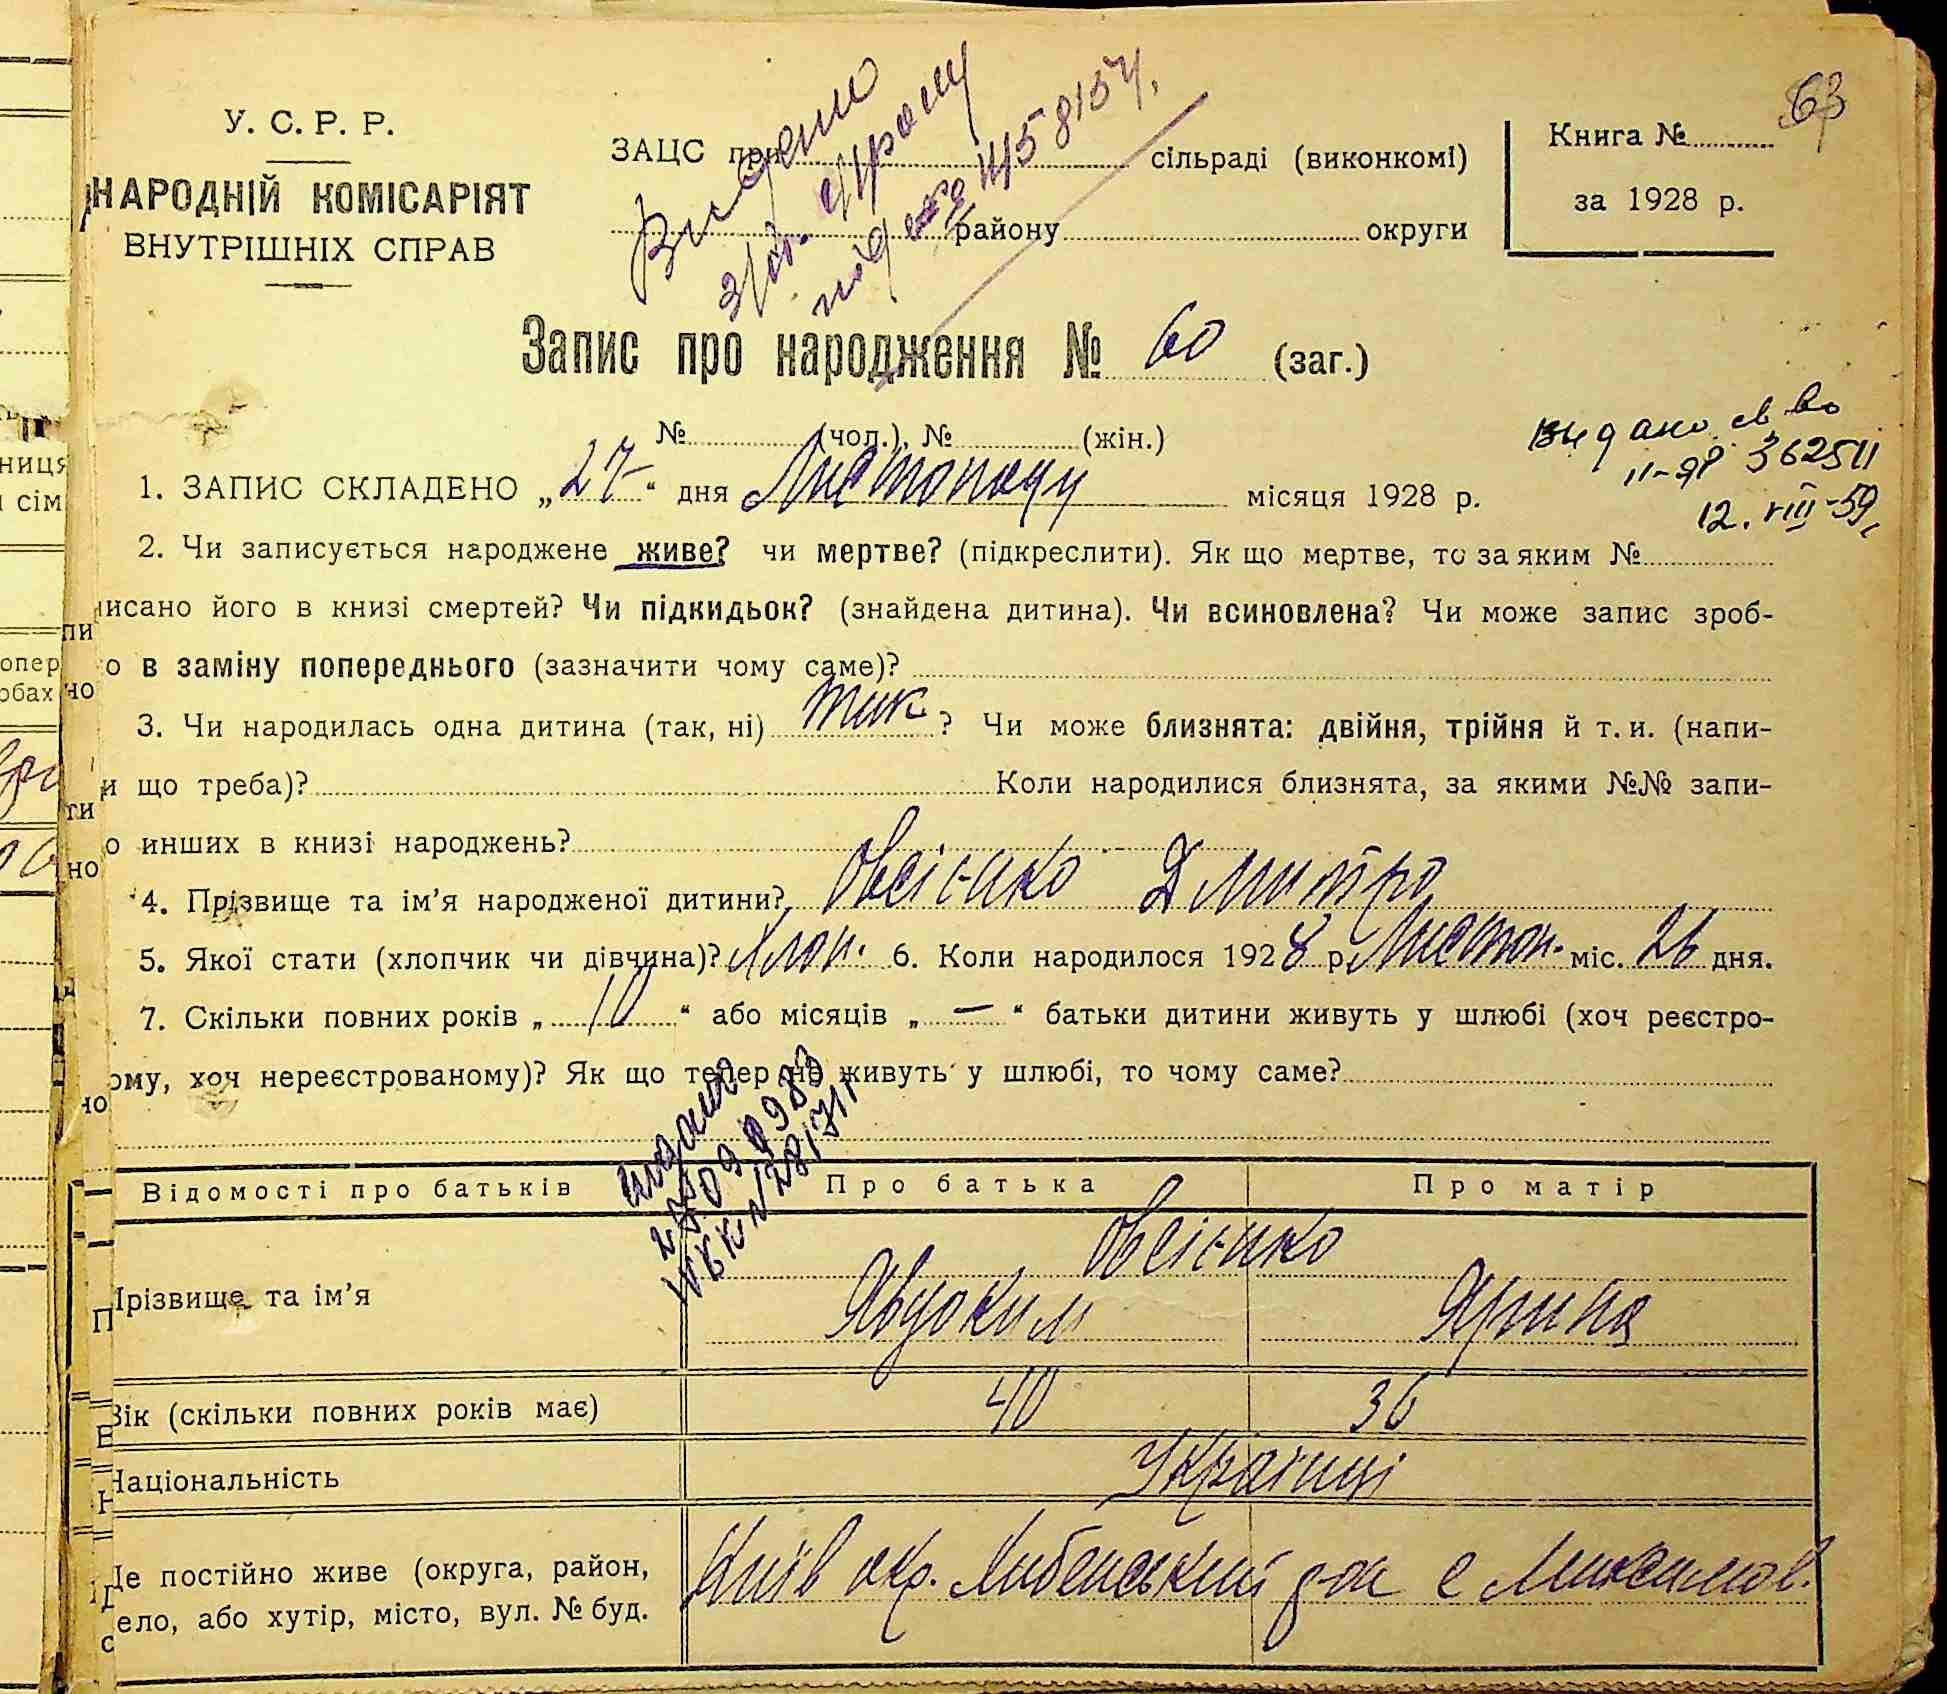 63
У. С. Р. Р.
НАРОДНІЙ КОМІСАРІЯТ
ВНУТРІШНІХ СПРАВ
ЗАЦС при сільраді (виконкомі)
району округи
Книга №
за 1928 р.
Запис про народження № 60 (заг.)
№ (чол.), № (жін.)
видано св во
362511
12. VIII-59
1. ЗАПИС СКЛАДЕНО „27“ дня Листопаду місяця 1928 р.
2. Чи записується народжене живе? чи мертве? (підкреслити). Як що мертве, то за яким №
исано його в книзі смертей? Чи підкидьок? (знайдена дитина). Чи всиновлена? Чи може запис зроб-
о в заміну попереднього (зазначити чому саме)?
3. Чи народилась одна дитина (так, ні) так? Чи може близнята: двійня, трійня й т. и. (напи-
и що треба)? Коли народилися близнята, за якими №№ запи-
о инших в книзі народжень?
4. Прізвище та ім’я народженої дитини? Овсієнко Дмитро
5. Якої стати (хлопчик чи дівчина)? Хлоп. 6. Коли народилося 1928 р. Листоп. міс. 26 дня.
7. Скільки повних років „10“ або місяців „—“ батьки дитини живуть у шлюбі (хоч реєстро-
ому, хоч нереєстрованому)? Як що тепер не живуть у шлюбі, то чому саме?
Відомості про батьків Про батька Про матір
Овсієнко
Прізвище та ім’я Явдоким Ярина
Вік (скільки повних років має) 40 36
Національність Українці
Де постійно живе (округа, район, Київ окр. р-он с Максимов.
село, або хутір, місто, вул. № буд.